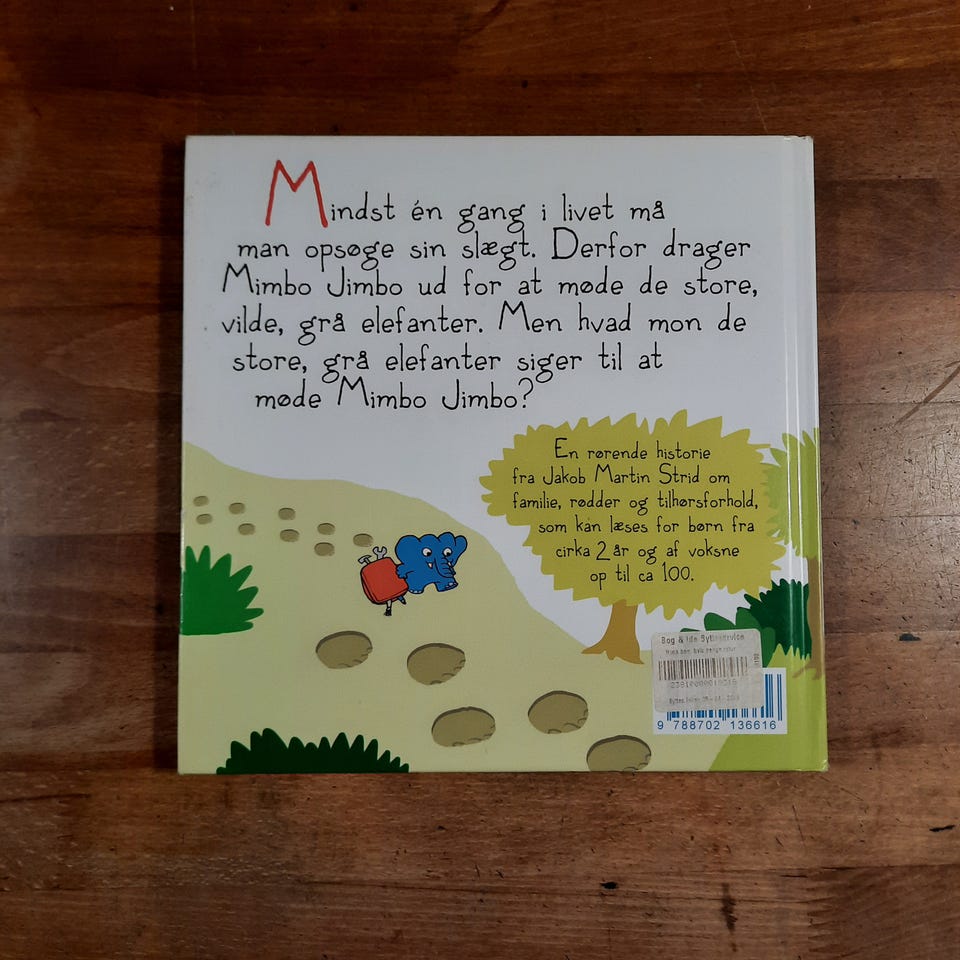 Mindst én gang i livet må
man opsøge sin slægt. Derfor drager
Mimbo Jimbo ud for at møde de store,
vilde, grå elefanter. Men hvad mon de
store, grå elefanter siger til at
møde Mimbo Jimbo?
En rørende historie
fra Jakob Martin Strid om
familie, rødder og tilhørsforhold,
som kan læses for børn fra
cirka 2 år og af voksne
op til ca 100.
Bog & Ide Bytteservice
9 788702 136616